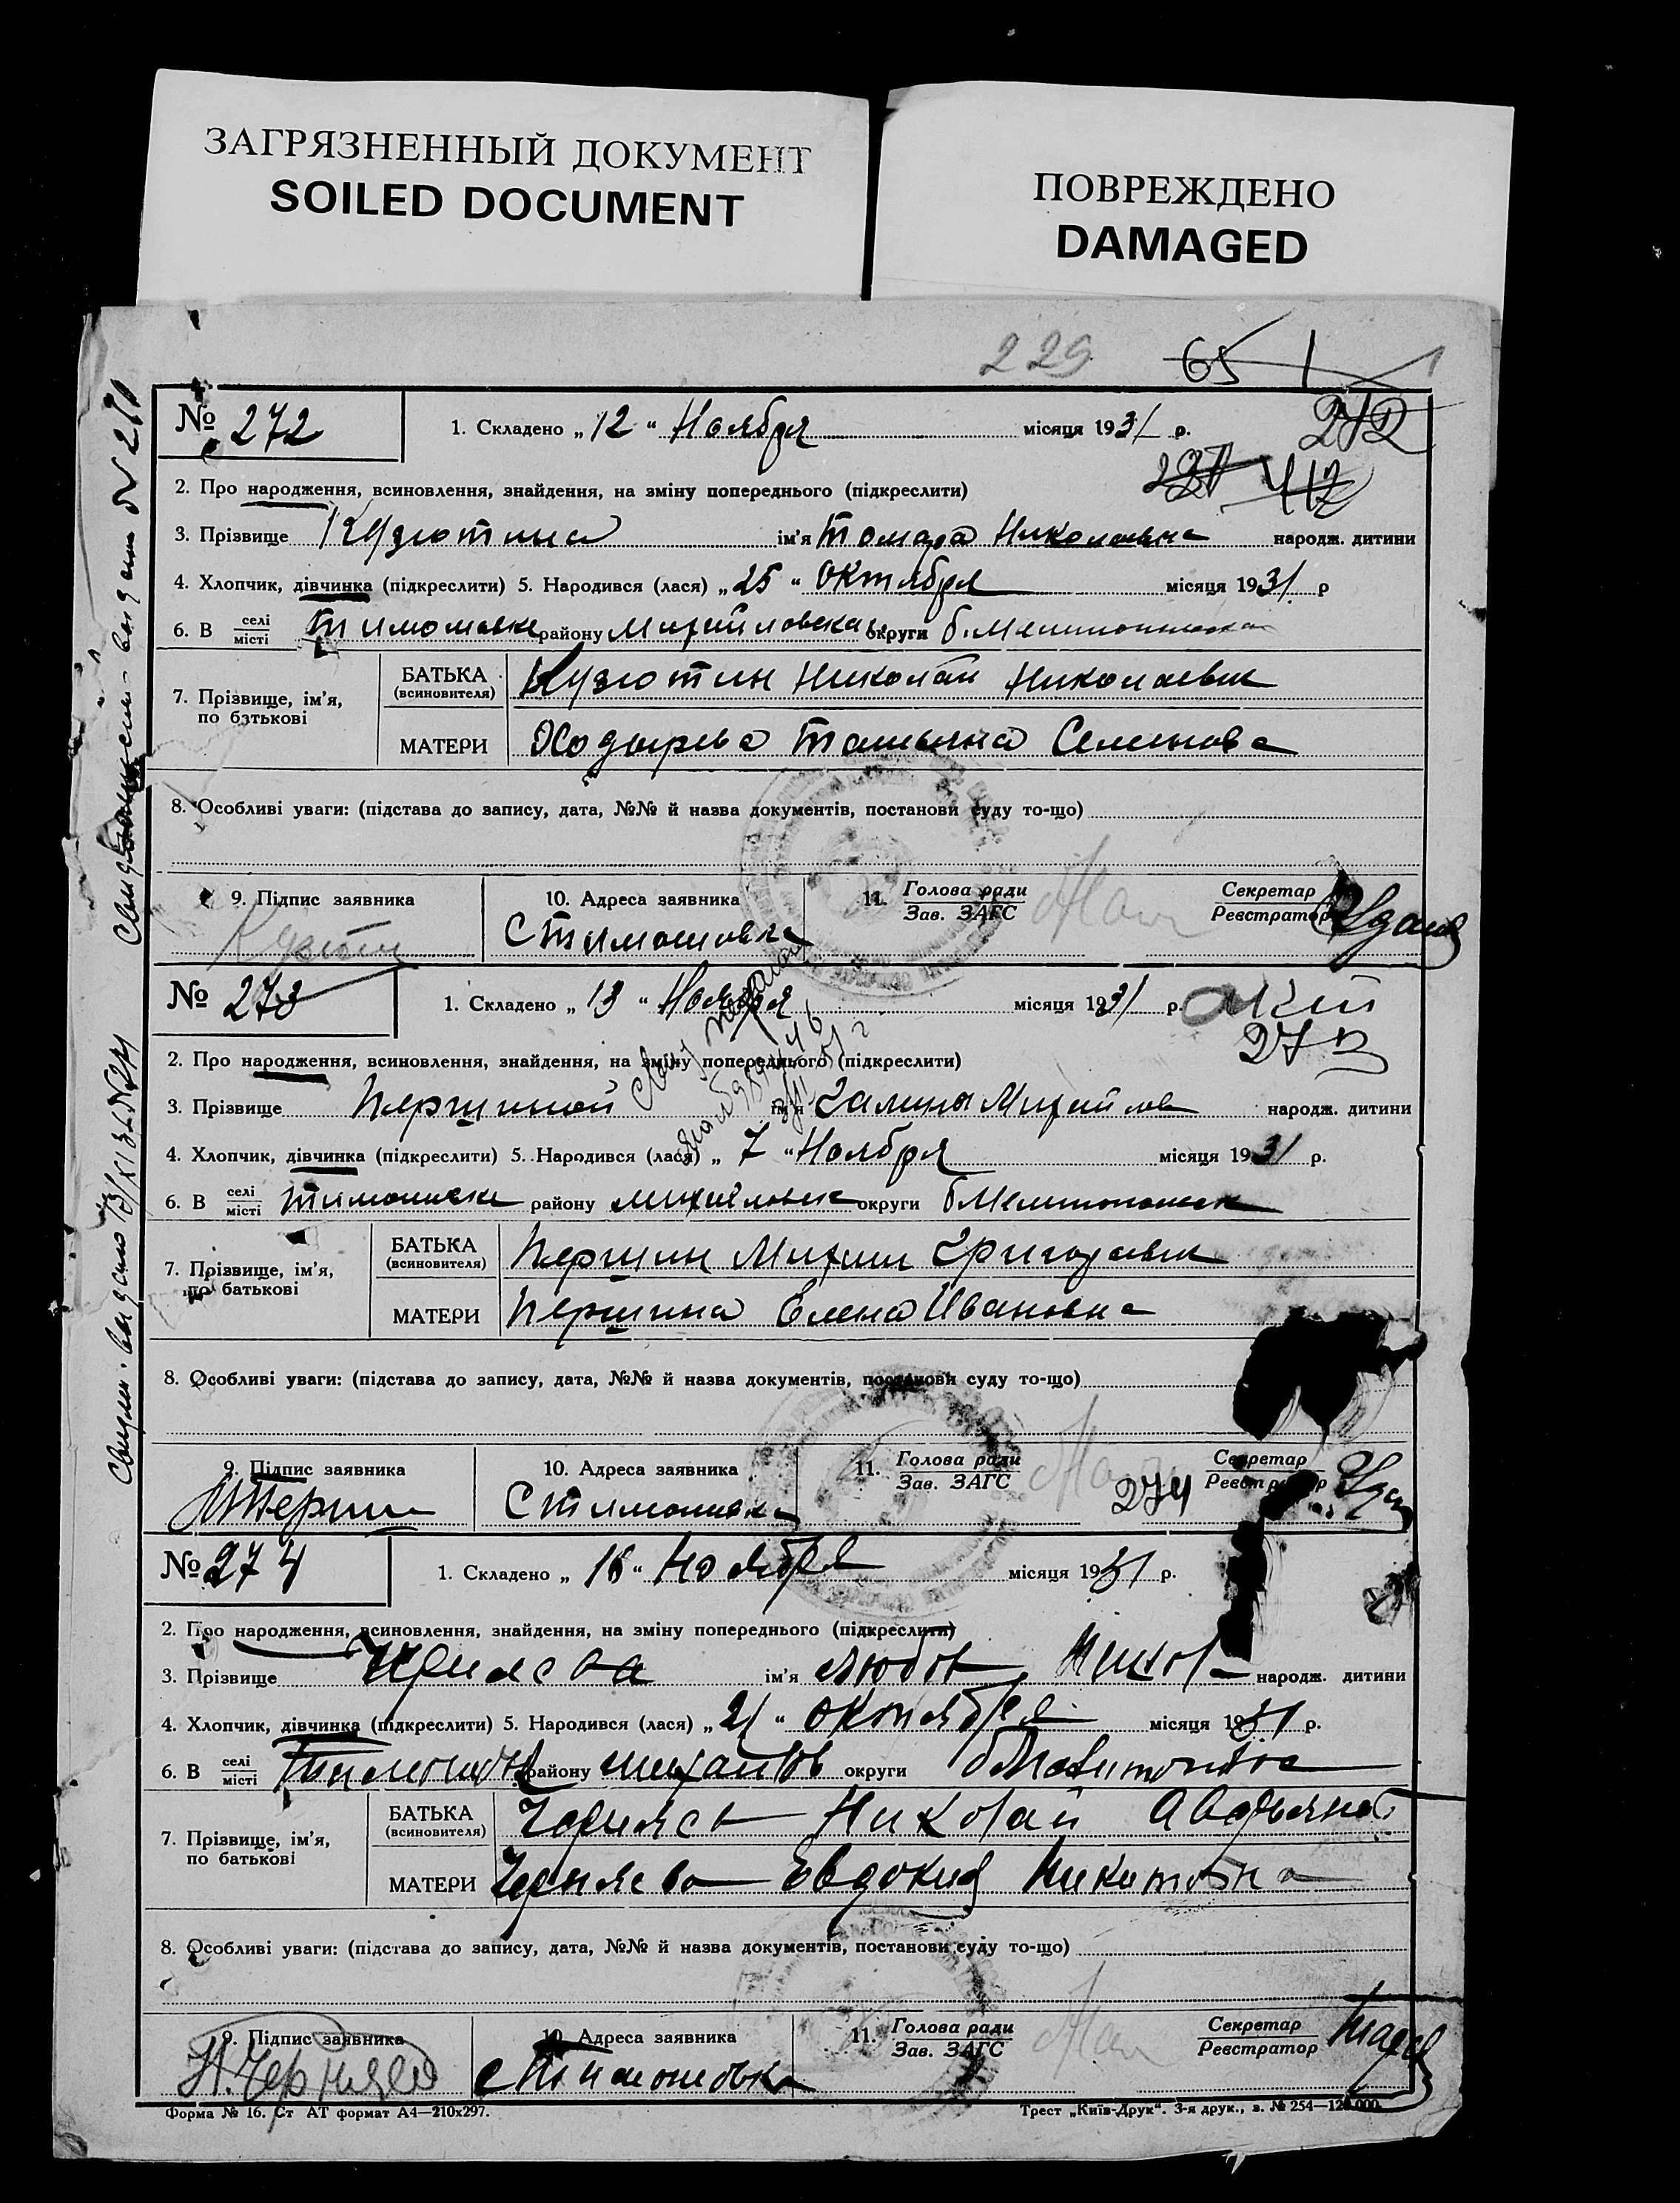 ЗАГРЯЗНЕННЫЙ ДОКУМЕНТ
SOILED DOCUMENT
ПОВРЕЖДЕНО
DAMAGED
229 65
№ 272
1. Складено „12“ Ноября місяця 1931 р.
272
2. Про народження, всиновлення, знайдення, на зміну попереднього (підкреслити)
3. Прізвище Кузютина ім'я Тамара Николаевна народж. дитини
4. Хлопчик, дівчинка (підкреслити) 5. Народився (лася) „25“ Октября місяця 1931 р
6. В селі місті Тимошовке району Михайловская округи б.Мелитопольска
7. Прізвище, ім'я, по батькові
БАТЬКА (всиновителя) Кузютин Николай Николаевич
МАТЕРИ Ходырева Татьяна Семенова
8. Особливі уваги: (підстава до запису, дата, №№ й назва документів, постанови суду то-що)
9. Підпис заявника
10. Адреса заявника
С Тимошовка
11. Голова ради
Зав. ЗАГС
Секретар
Реєстратор
№ 273
1. Складено „13“ Ноября місяця 1931 р.
273
2. Про народження, всиновлення, знайдення, на зміну попереднього (підкреслити)
3. Прізвище Першиной ім'я Галина Михайлов народж. дитини
4. Хлопчик, дівчинка (підкреслити) 5. Народився (лася) „7“ Ноября місяця 1931 р.
6. В селі місті Тимошовке району Михайловск округи б Мелитопольск
7. Прізвище, ім'я, по батькові
БАТЬКА (всиновителя) Першин Михаил Григорьевич
МАТЕРИ Першина Елена Ивановна
8. Особливі уваги: (підстава до запису, дата, №№ й назва документів, постанови суду то-що)
9. Підпис заявника
МПершин
10. Адреса заявника
С Тимошовка
11. Голова ради
Зав. ЗАГС
274
Секретар
Реєстратор
№ 274
1. Складено „16“ Ноября місяця 1931 р.
2. Про народження, всиновлення, знайдення, на зміну попереднього (підкреслити)
3. Прізвище Черняева ім'я Любов Никол народж. дитини
4. Хлопчик, дівчинка (підкреслити) 5. Народився (лася) „21“ октября місяця 1931 р.
6. В селі місті Тимошовк району Михайлов округи
7. Прізвище, ім'я, по батькові
БАТЬКА (всиновителя) Черняев Николай
МАТЕРИ Черняева Евдокия Никитовна
8. Особливі уваги: (підстава до запису, дата, №№ й назва документів, постанови суду то-що)
9. Підпис заявника
Н.Черняев
10. Адреса заявника
с Тимошовка
11. Голова ради
Зав. ЗАГС
Секретар
Реєстратор
Форма № 16. Ст АТ формат А4—210х297.
Трест „Київ-Друк“. 3-я друк., з. № 254—120.000.